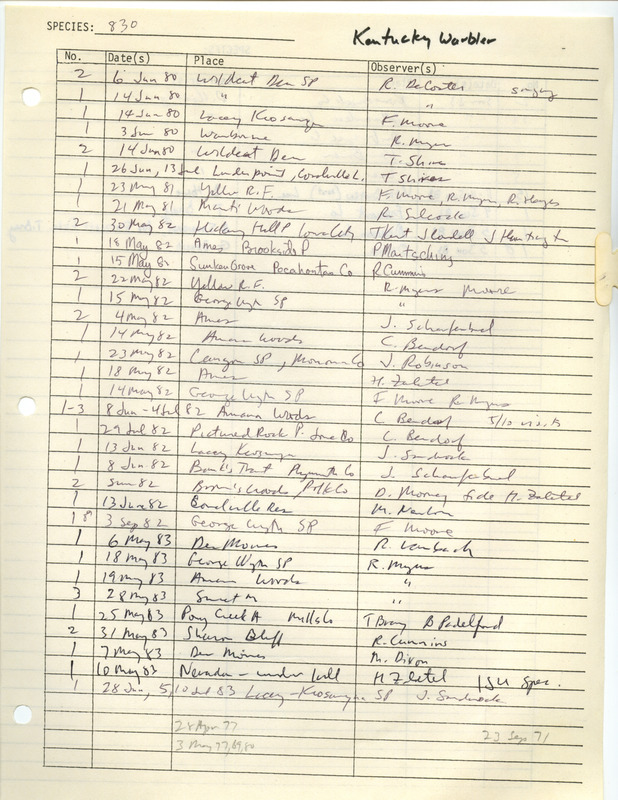 SPECIES: 830
Kentucky Warbler
No. Date(s) Place Observer(s)
2 6 Jun 80 Wildcat Den SP R. DeCoster singing
1 14 Jun 80 " "
1 14 Jun 80 Lacey Keosauqua F. Moore
1 3 Jun 80 R. Myers
2 14 Jun 80 Wildcat Den T. Shires
1 26 Jun, 13 Jul Linder point, Coralville L. T Shires
1 23 May 81 Yellow R.F. F. Moore, R. Myers, R. Hayes
1 21 May 81 Manti Woods R. Silcock
2 30 May 82 Hickory Hill P T Kent J Huntington
1 18 May 82 Ames Brookside P P Martsching
1 15 May 82 Sunken Grove Pocahontas Co R Cummins
2 22 May 82 Yellow R.F. R. Myers Moore
1 15 May 82 George Wyth SP "
2 4 May 82 Ames J. Schaufenbuel
1 14 May 82 Amana Woods C. Bendorf
1 23 May 82 SP, Monona Co J. Robinson
1 18 May 82 Ames H. Zaletel
1 14 May 82 George Wyth SP F Moore R. Myers
1-3 8 Jun - 4 Jul 82 Amana Woods C Bendorf 5/10 visits
1 29 Jul 82 Pictured Rock P. Jones Co C. Bendorf
1 13 Jun 82 Lacey Keosauqua J. Sandrock
1 8 Jun 82 Plymouth Co J. Schaufenbuel
2 Sum 82 Brown's Woods Polk Co D. Mooney fide H. Zaletel
1 13 June 82 Coralville Res M. Newlon
1 3 Sep 82 George Wyth SP F Moore
1 6 May 83 Des Moines
1 18 May 83 George Wyth SP R. Myers
1 19 May 83 Amana Woods "
3 28 May 83 "
1 25 May 83 Pony Creek P Mills Co T Bray B Padelford
2 31 May 83 Sharon Bluff R. Cummins
1 7 May 83 Des Moines M. Dixon
1 10 May 83 Nevada - H Zaletel ISU Spec.
1 28 Jun, 5, 10 Jul 83 Lacey-Keosauqua SP J. Sandrock
28 Apr 77 23 Sep 71
3 May 77,69,80